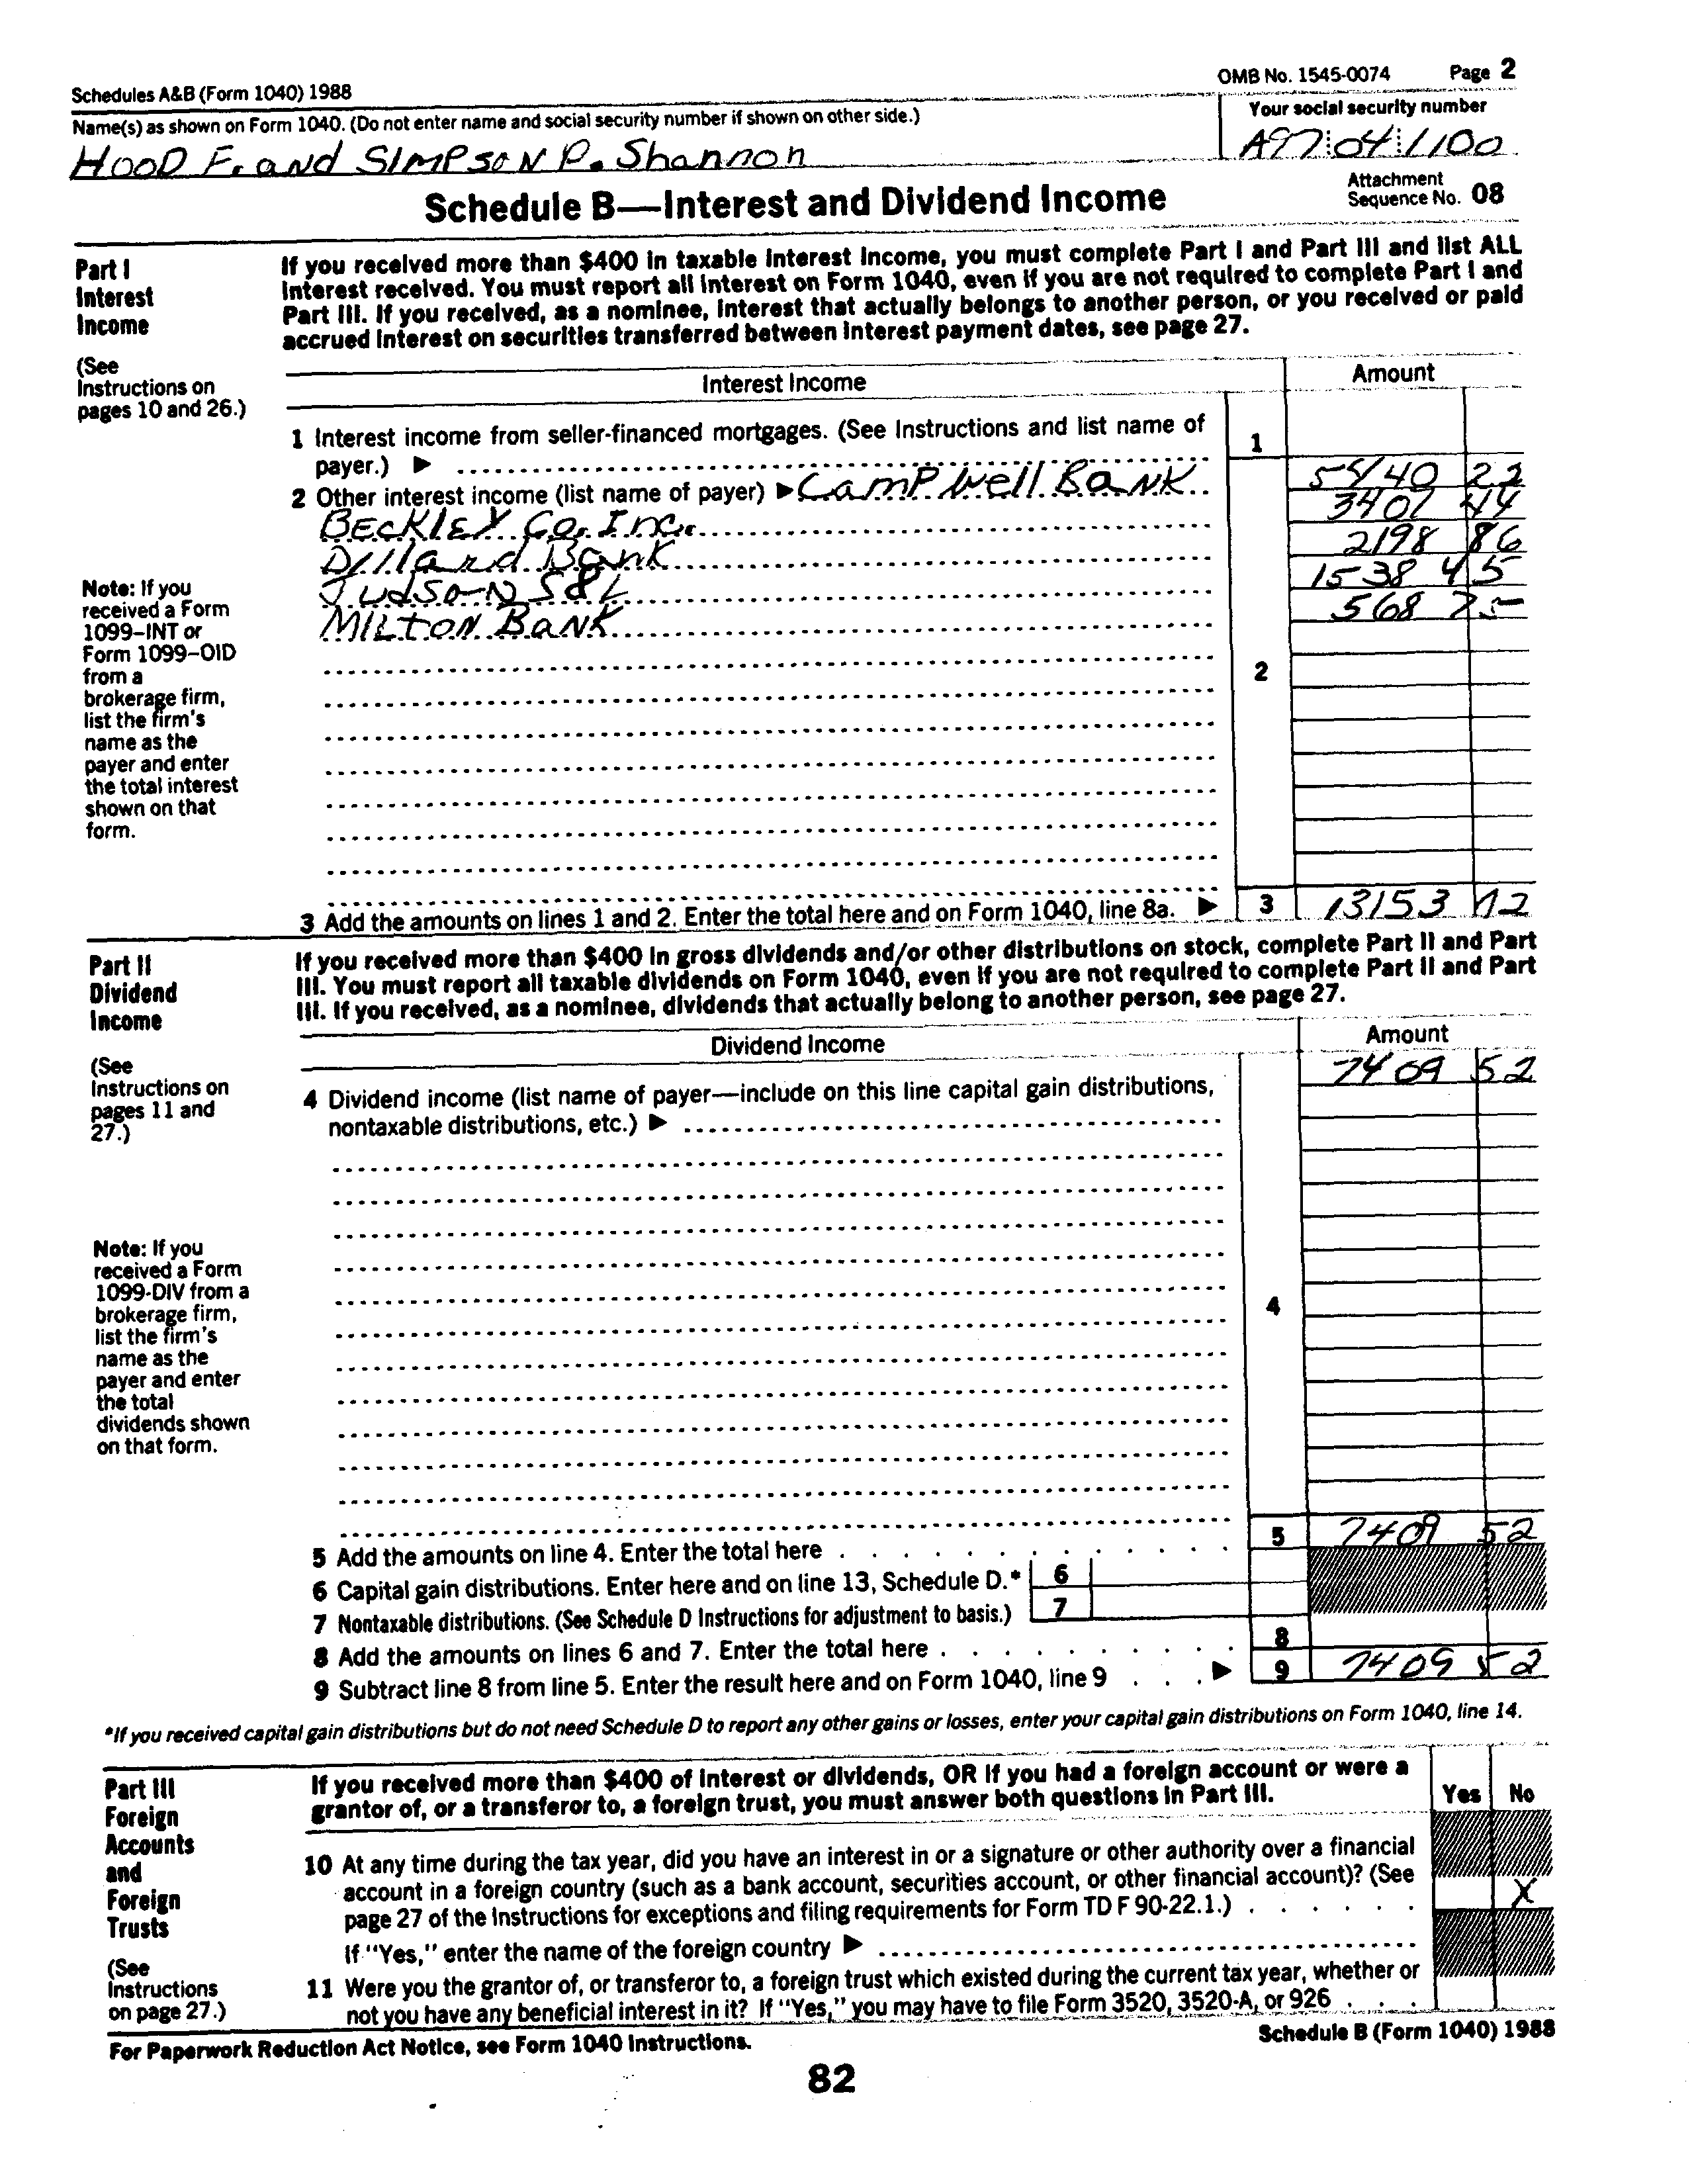 Schedules A&B (Form 1040) 1988
OMB No. 1545-0074 Page 2
Name(s) as shown on Form 1040. (Do not enter name and social security number if shown on other side.)
Your social security number
HOOD F. and SIMPSON P. Shannon
A97 04 1100
Schedule B—Interest and Dividend Income
Attachment
Sequence No. 08
Part I
Interest
Income
(See
Instructions on
pages 10 and 26.)
If you received more than $400 in taxable interest income, you must complete Part I and Part III and list ALL
interest received. You must report all interest on Form 1040, even if you are not required to complete Part I and
Part III. If you received, as a nominee, interest that actually belongs to another person, or you received or paid
accrued interest on securities transferred between interest payment dates, see page 27.
Interest Income
Amount
1 Interest income from seller-financed mortgages. (See Instructions and list name of
payer.) ▶
1
2 Other interest income (list name of payer) ▶ CamPwell BaNK 5440 22
BECKlEY Co. Inc. 3407 44
Dillard Bank 2198 86
JudsoN S&L 1538 45
MILTON BaNK 568 75
Note: If you
received a Form
1099-INT or
Form 1099-OID
from a
brokerage firm,
list the firm's
name as the
payer and enter
the total interest
shown on that
form.
2
3 Add the amounts on lines 1 and 2. Enter the total here and on Form 1040, line 8a. ▶ 3 13153 72
Part II
Dividend
Income
(See
Instructions on
pages 11 and
27.)
If you received more than $400 in gross dividends and/or other distributions on stock, complete Part II and Part
III. You must report all taxable dividends on Form 1040, even if you are not required to complete Part II and Part
III. If you received, as a nominee, dividends that actually belong to another person, see page 27.
Dividend Income
Amount
7409 52
4 Dividend income (list name of payer—include on this line capital gain distributions,
nontaxable distributions, etc.) ▶
Note: If you
received a Form
1099-DIV from a
brokerage firm,
list the firm's
name as the
payer and enter
the total
dividends shown
on that form.
4
5 Add the amounts on line 4. Enter the total here 5 7409 52
6 Capital gain distributions. Enter here and on line 13, Schedule D.* 6
7 Nontaxable distributions. (See Schedule D Instructions for adjustment to basis.) 7
8 Add the amounts on lines 6 and 7. Enter the total here 8
9 Subtract line 8 from line 5. Enter the result here and on Form 1040, line 9 ▶ 9 7409 52
*If you received capital gain distributions but do not need Schedule D to report any other gains or losses, enter your capital gain distributions on Form 1040, line 14.
Part III
Foreign
Accounts
and
Foreign
Trusts
(See
Instructions
on page 27.)
If you received more than $400 of interest or dividends, OR if you had a foreign account or were a
grantor of, or a transferor to, a foreign trust, you must answer both questions in Part III.
Yes No
10 At any time during the tax year, did you have an interest in or a signature or other authority over a financial
account in a foreign country (such as a bank account, securities account, or other financial account)? (See
page 27 of the Instructions for exceptions and filing requirements for Form TD F 90-22.1.) X
If "Yes," enter the name of the foreign country ▶
11 Were you the grantor of, or transferor to, a foreign trust which existed during the current tax year, whether or
not you have any beneficial interest in it? If "Yes," you may have to file Form 3520, 3520-A, or 926
For Paperwork Reduction Act Notice, see Form 1040 Instructions.
Schedule B (Form 1040) 1988
82